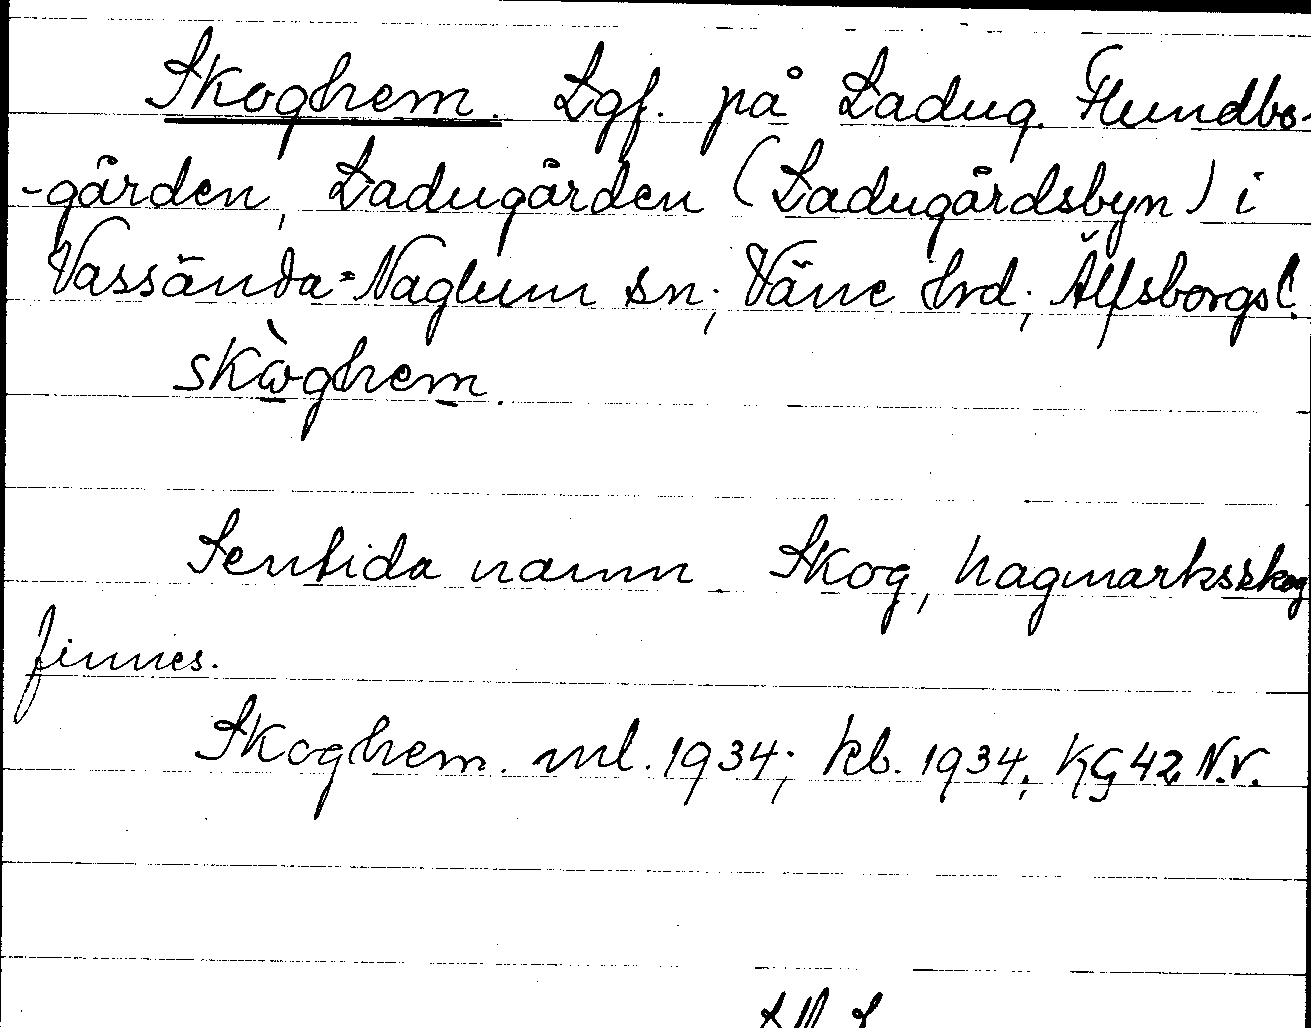 Skoghem. Lgf. på Ladug. Flundbo-
-gården, Ladugården (Ladugårdsbyn) i
Vassända-Naglum sn; Väne hrd; Älfsborgs l.
skòghem.
Sentida namn. Skog, hagmarksskog
finnes.
Skoghem. ml. 1934; kb. 1934; KG 42 N.V.